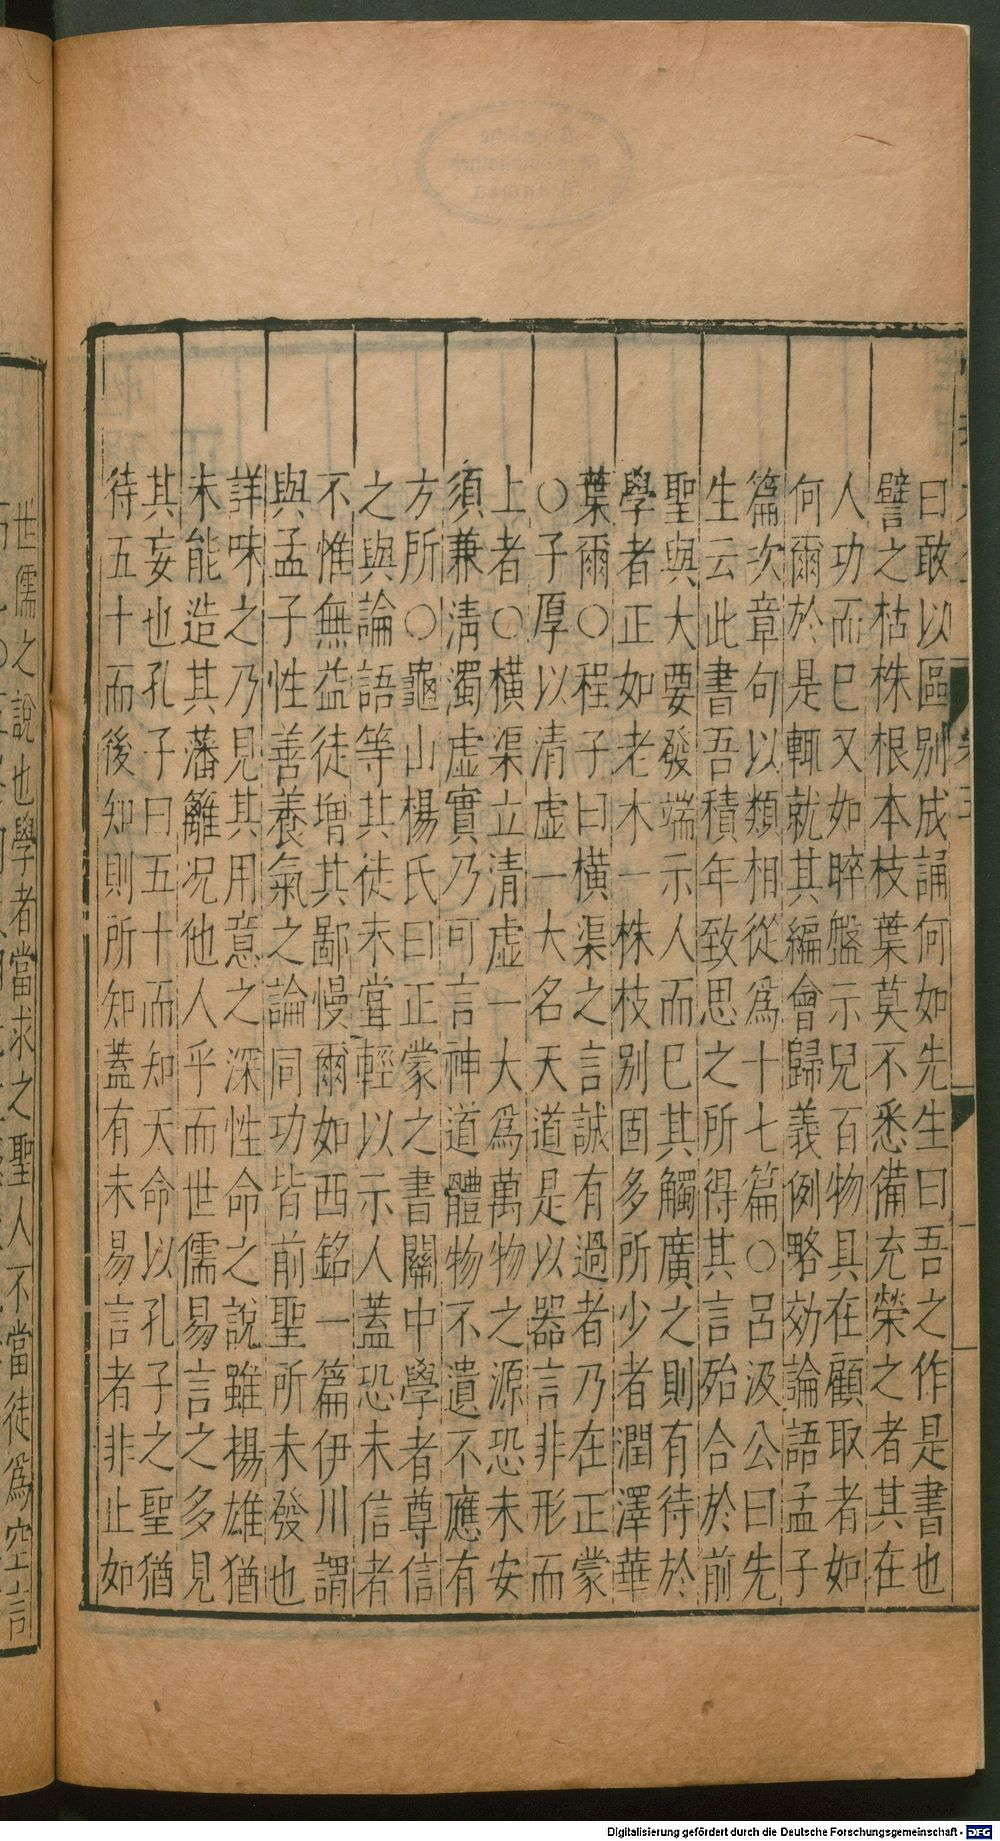 曰敢以區别成誦何如先生曰吾之作是書也
譬之枯株根本枝葉莫不悉備充榮之者其在
人功而已又如晬盤示兒百物具在顧取者如
何爾於是輒就其編會歸義例略効論語孟子
篇次章句以類相從爲十七篇○呂汲公曰先
生云此書吾積年致思之所得其言殆合於前
聖與大要發端示人而已其觸廣之則有待於
學者正如老木一株枝别固多所少者潤澤華
葉爾○程子曰橫渠之言誠有過者乃在正蒙
○子厚以清虚一大名天道是以器言非形而
上者○橫渠立清虚一大爲萬物之源恐未安
須兼清濁虚實乃可言神道體物不遺不應有
方所○龜山楊氏曰正蒙之書關中學者尊信
之與論語等其徒未甞輕以示人蓋恐未信者
不惟無益徒增其鄙慢爾如西銘一篇伊川謂
與孟子性善養氣之論同功皆前聖所未發也
詳味之乃見其用意之深性命之說雖楊雄猶
未能造其藩籬况他人乎而世儒易言之多見
其妄也孔子曰五十而知天命以孔子之聖猶
待五十而後知則所知蓋有未易言者非止如
世儒之說也學者當求之聖人不當徒爲空言
Digitalisierung gefördert durch die Deutsche Forschungsgemeinschaft - DFG